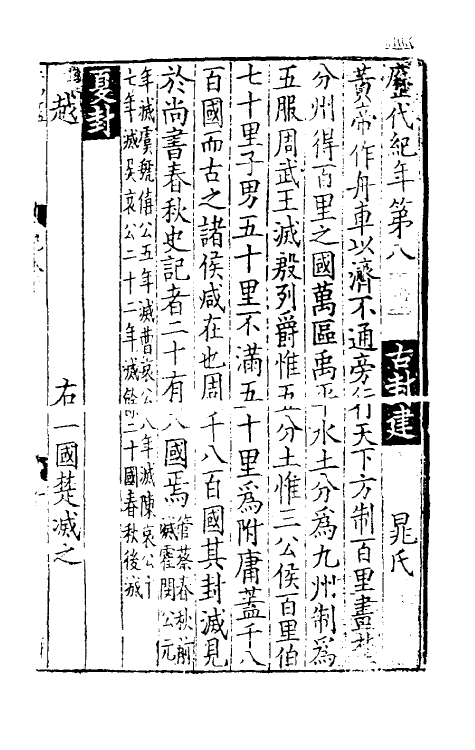 歷代紀年第八 古封建 晁氏
黃帝作舟車以濟不通旁行天下方制百里畫埜
分州得百里之國萬區禹平水土分為九州制為
五服周武王滅殷列爵惟五分土惟三公侯百里伯
七十里子男五十里不滿五十里為附庸蓋千八
百國而古之諸侯咸在也周千八百國其封滅見
於尚書春秋史記者二十有八國焉管蔡春秋前
滅霍閔公元
年滅虞虢僖公五年滅曹哀公八年滅陳哀公十
七年滅吳哀公二十二年滅餘二十國春秋後滅
夏封
越 右一國楚滅之